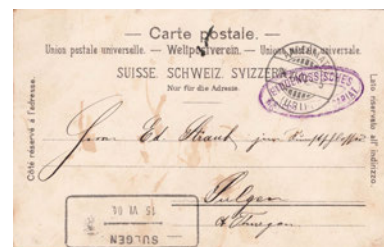 — Carte postale. —
Union postale universelle. — Weltpostverein. — Unione postale universale.
SUISSE. SCHWEIZ. SVIZZERA.
Nur für die Adresse.
Côté réservé à l'adresse.
Lato riservato all'indirizzo.
EIDGENÖSSISCHES
Herrn Ed. Straub
Sulgen
Thurgau
SULGEN
15 VI 04